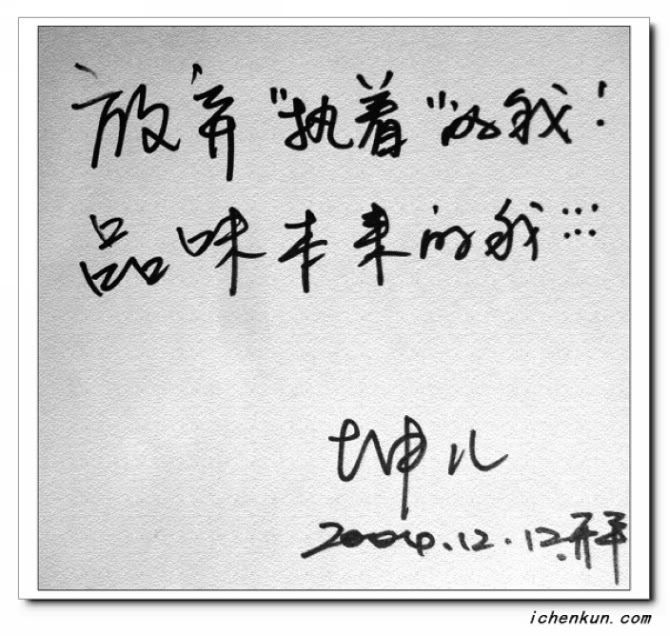 放弃"执着"的我!
品味本来的我……
坤儿
2004.12.12.开平
ichenkun.com